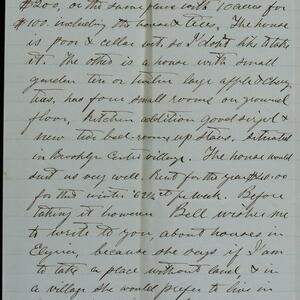 $200, or the same place with 10 acres for
$100. including the house & trees. The house
is poor & cellar wet, so I don't like to take
it. The other is a house with small
garden ten or twelve large apple & cherry
trees, has four small rooms on ground
floor, kitchen addition good size &
new bed rooms up stairs. situated
in Brooklyn Centre village. The house would
suit us very well. Rent for the year $40.00
for the winter 62½ cts per week. Before
taking it however Bell wishes me
to write to you, about houses in
Elyria, because she says if I am
to take a place without land & in
a village she would prefer to live in